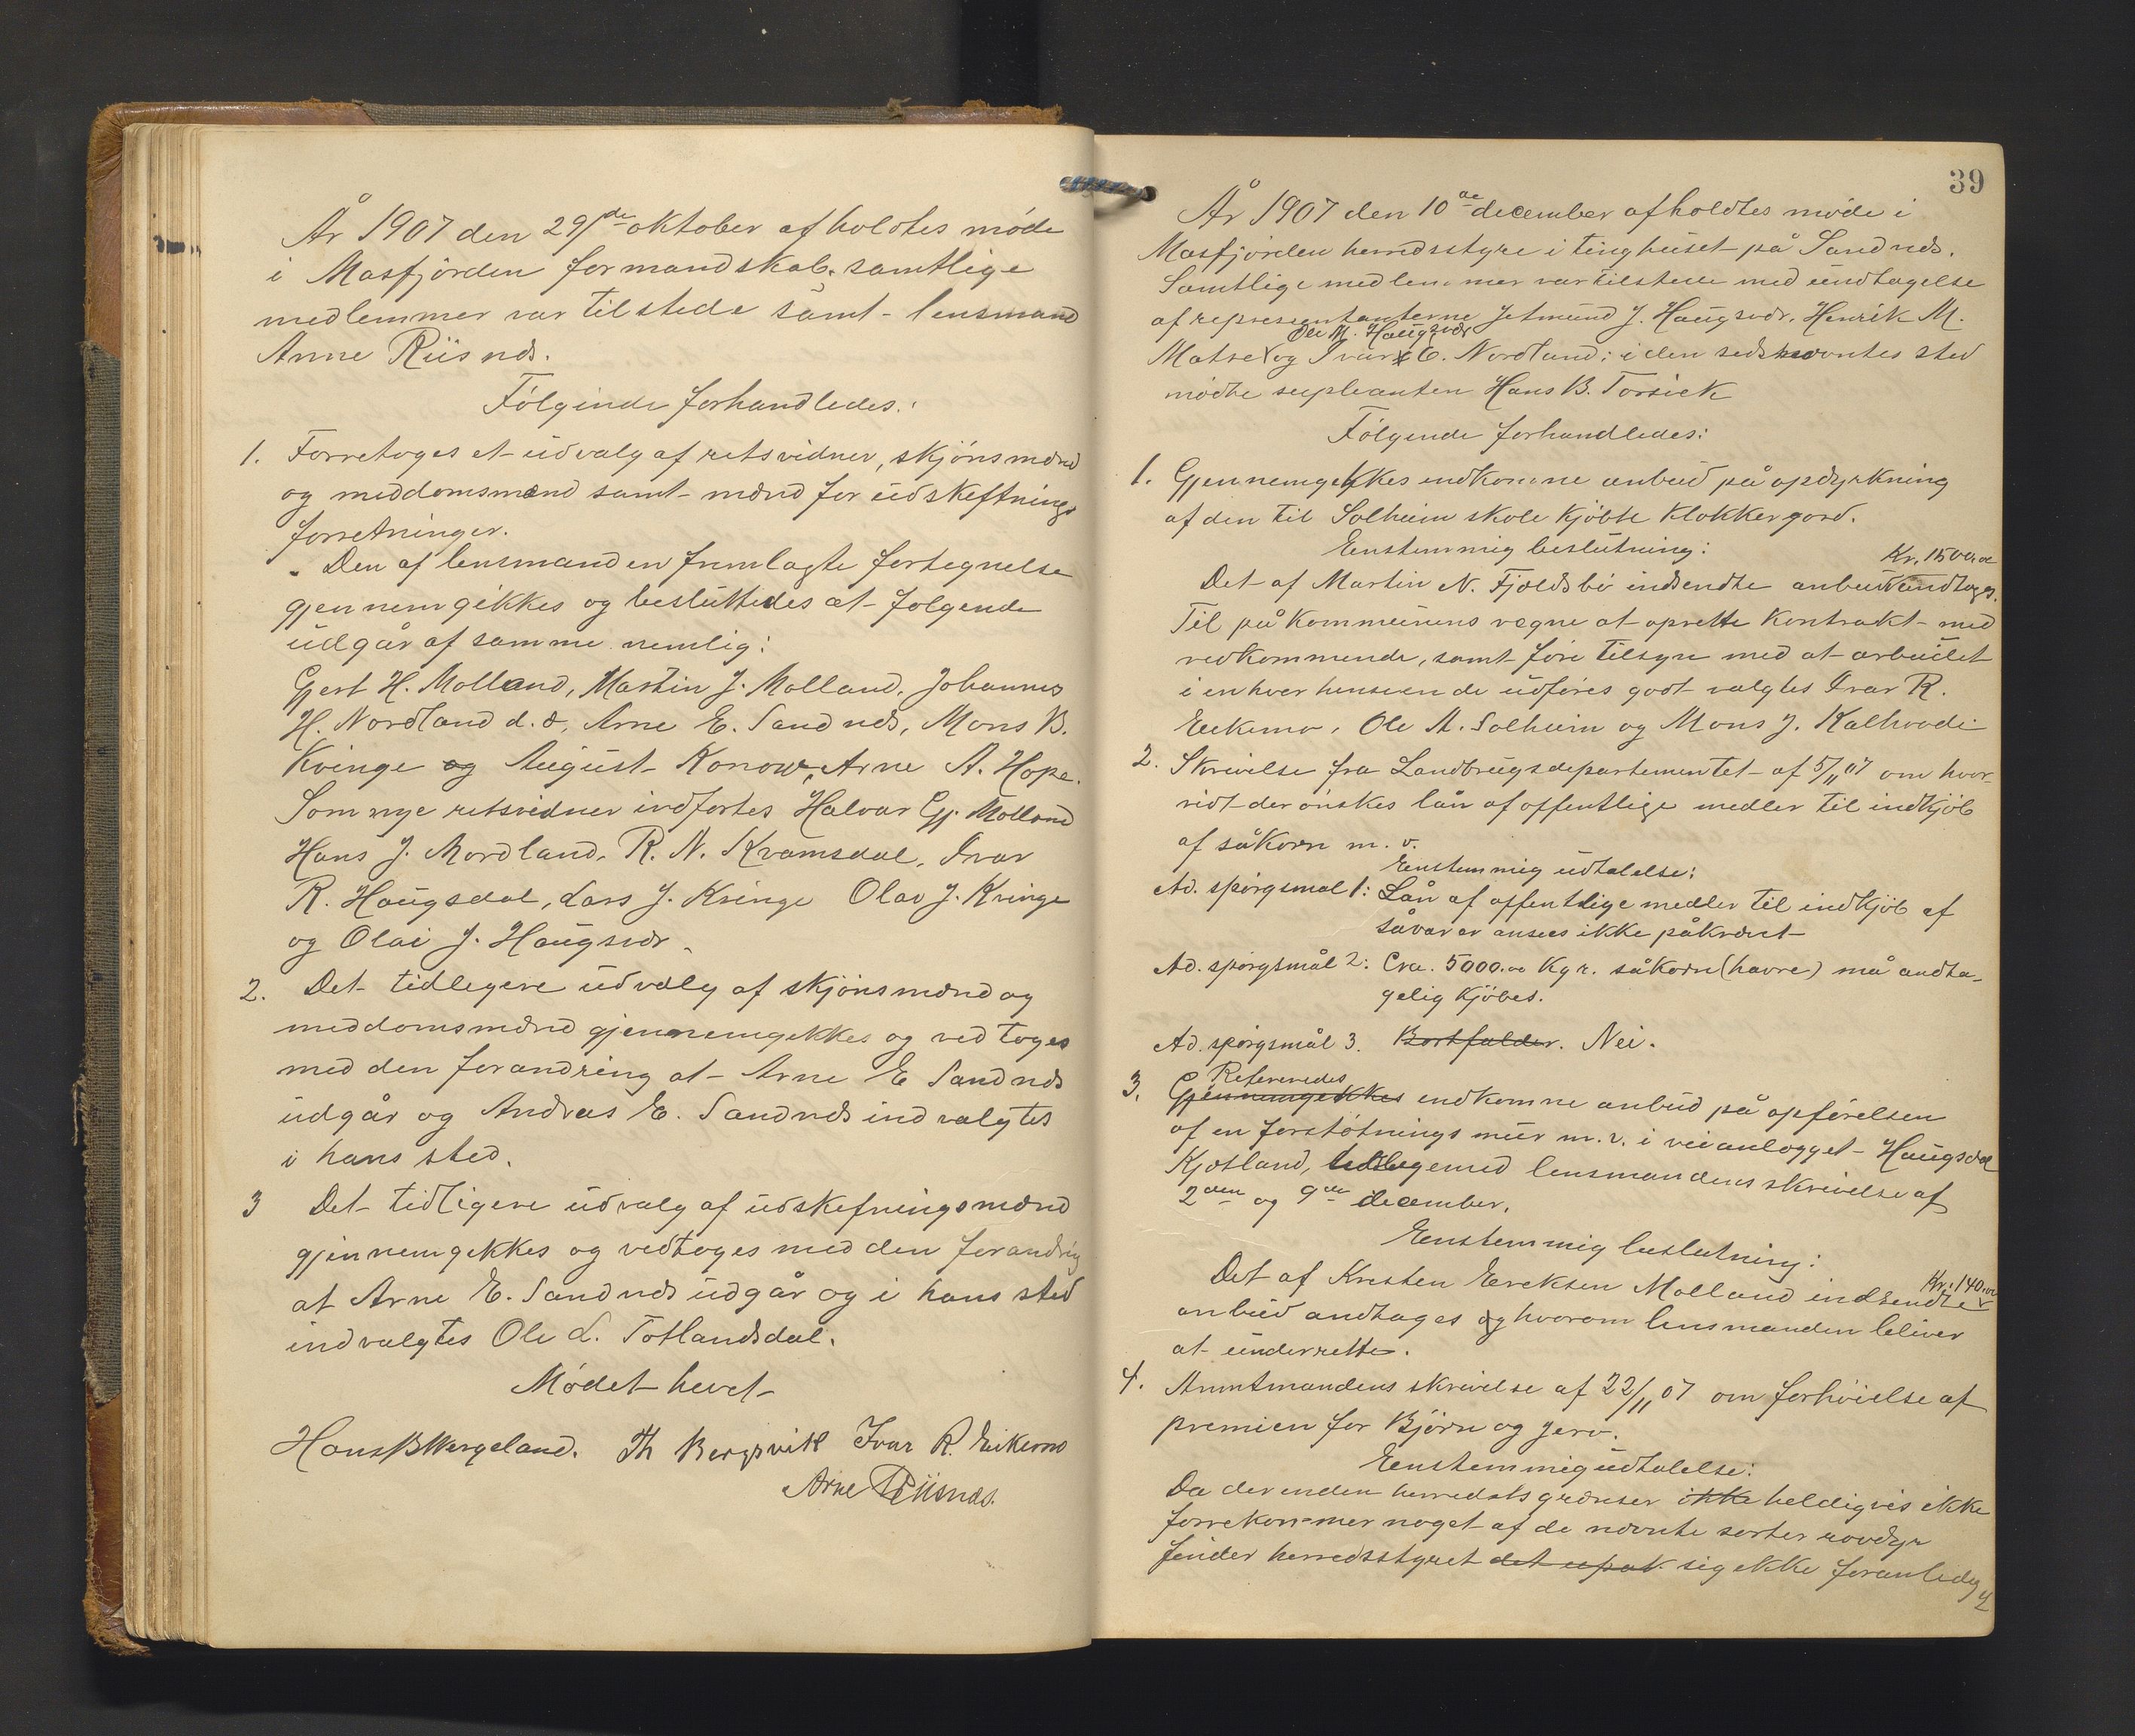 År 1907 den 29de oktober afholdtes møde
i Masfjorden formandskab. samtlige
medlemmer var tilstede samt lensmand
Arne Riisnæs.
Følginde forhandledes:
1. Forretoges et udvalg af retsvidner, skjönsmænd
og meddomsmænd samt mænd for udskeftnings
forretninger.
Den af lensmanden fremlagte fortegnelse
gjennemgikkes og besluttedes at følgende
udgår af samme nemlig:
Gjert H. Molland, Martin J. Molland, Johannes
H. Nordland d.æ, Arne E. Sandnæs, Mons B.
Kvinge og August Konow, Arne A. Hope.
Som nye retsvidner indførtes Halvar Gj. Molland
Hans J. Nordland, R. N. Kvamsdal, Ivar
R. Haugsdal, Lars J. Kvinge Olav J. Kvinge
og Olai J. Haugsvær.
2. Det tidlegere udvalg af skjönsmænd og
meddomsmænd gjennemgekkes og vedtoges
med den forandring at Arne E Sandnæs
udgår og Andreas E. Sandnæs indvalgtes
i hans sted.
3 Det tidligere udvalg af udskefningsmænd
gjennemgekkes og vedtoges med den forandrig
at Arne E. Sandnæs udgår og i hans sted
indvalgtes Ole L. Totlandsdal.
Mødet hevet
Hans B Wergeland. Th Bergsvik Ivar R. Eikemo
Arne Riisnæs.
39
År 1907 den 10de december afholdtes møde i
Masfjorden herredsstyre i tinghuset på Sandnæs.
Samtlige medlemmer var tilstede med undtagelse
af representanterne Jetmund J. Haugsvær, Henrik M.
Ole M. Haugsvær
Matre og Ivar E. Nordland; i den sedstnævntes sted
mødte supleanten Hans B. Torsvik
Følgende forhandledes:
1. Gjennemgekkes endkomne anbud på opdyrkning
af den til Solheim skole kjøbte klokkergard.
Eenstemmig beslutning:
Kr. 1500,oo
Det af Martin N. Fjeldsbø indsendte anbud andtages.
Til på kommunens vegne at oprette kontrakt med
vedkommende, samt føre tilsyn med at arbeidet
i enhver henseende udføres godt valgtes Ivar R.
Eekemo, Ole A. Solheim og Mons J. Kalhovde
2. Skrivelse fra Landbrugsdepartementet af 5/11 07 om hvor-
vidt der ønskes lån af offentlige medler til indkjøb
af såkorn m. v.
Eenstemmig udtalelse:
Ad. spörgsmål 1: Lån af offentlige medler til indkjøb af
såvarer ansees ikke påkrævet
Ad. spörgsmål 2: Cra. 5000.oo Kgr. såkorn (havre) må andta-
gelig kjøbes.
Ad. spörgsmål 3. Bortfalder. Nei.
Refereredes
3. Gjennemgekkes endkomne anbud på opførelsen
af en forstøtnings mur m.v. i veianlægget Haugsdal
Kjetland, tilligemed lensmandens skrivelse af
2den og 9de december.
Eenstemmig beslutning:
Kr. 140.oo
Det af Kresten Ereksen Molland indsendte
anbud andtages og hvorom lensmanden bliver
at underrette.
4. Amtmandens skrivelse af 22/11 07 om forhøielse af
premien for Bjørn og jerv.
Eenstemmig udtalelse:
Da der enden herredets grænser ikke heldigvis ikke
forrekommer noget af de nævnte sorter rovdyr
finder herredsstyret sig ekke foranledig